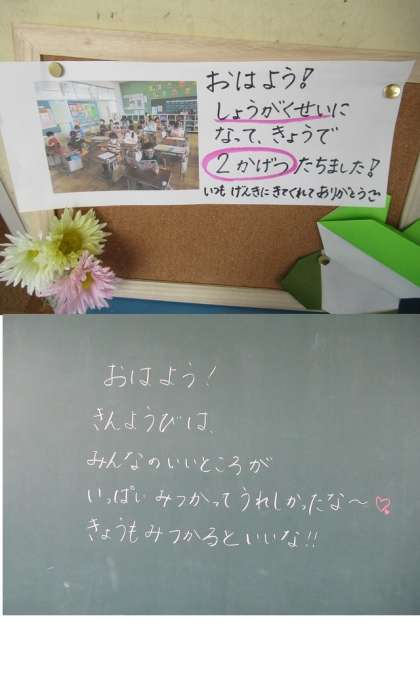 おはよう!
しょうがくせいに
なって、きょうで
2かげつたちました!
いつもげんきにきてくれてありがとう
おはよう!
きんようびは、
みんなのいいところが
いっぱいみつかってうれしかったな〜♡
きょうもみつかるといいな!!